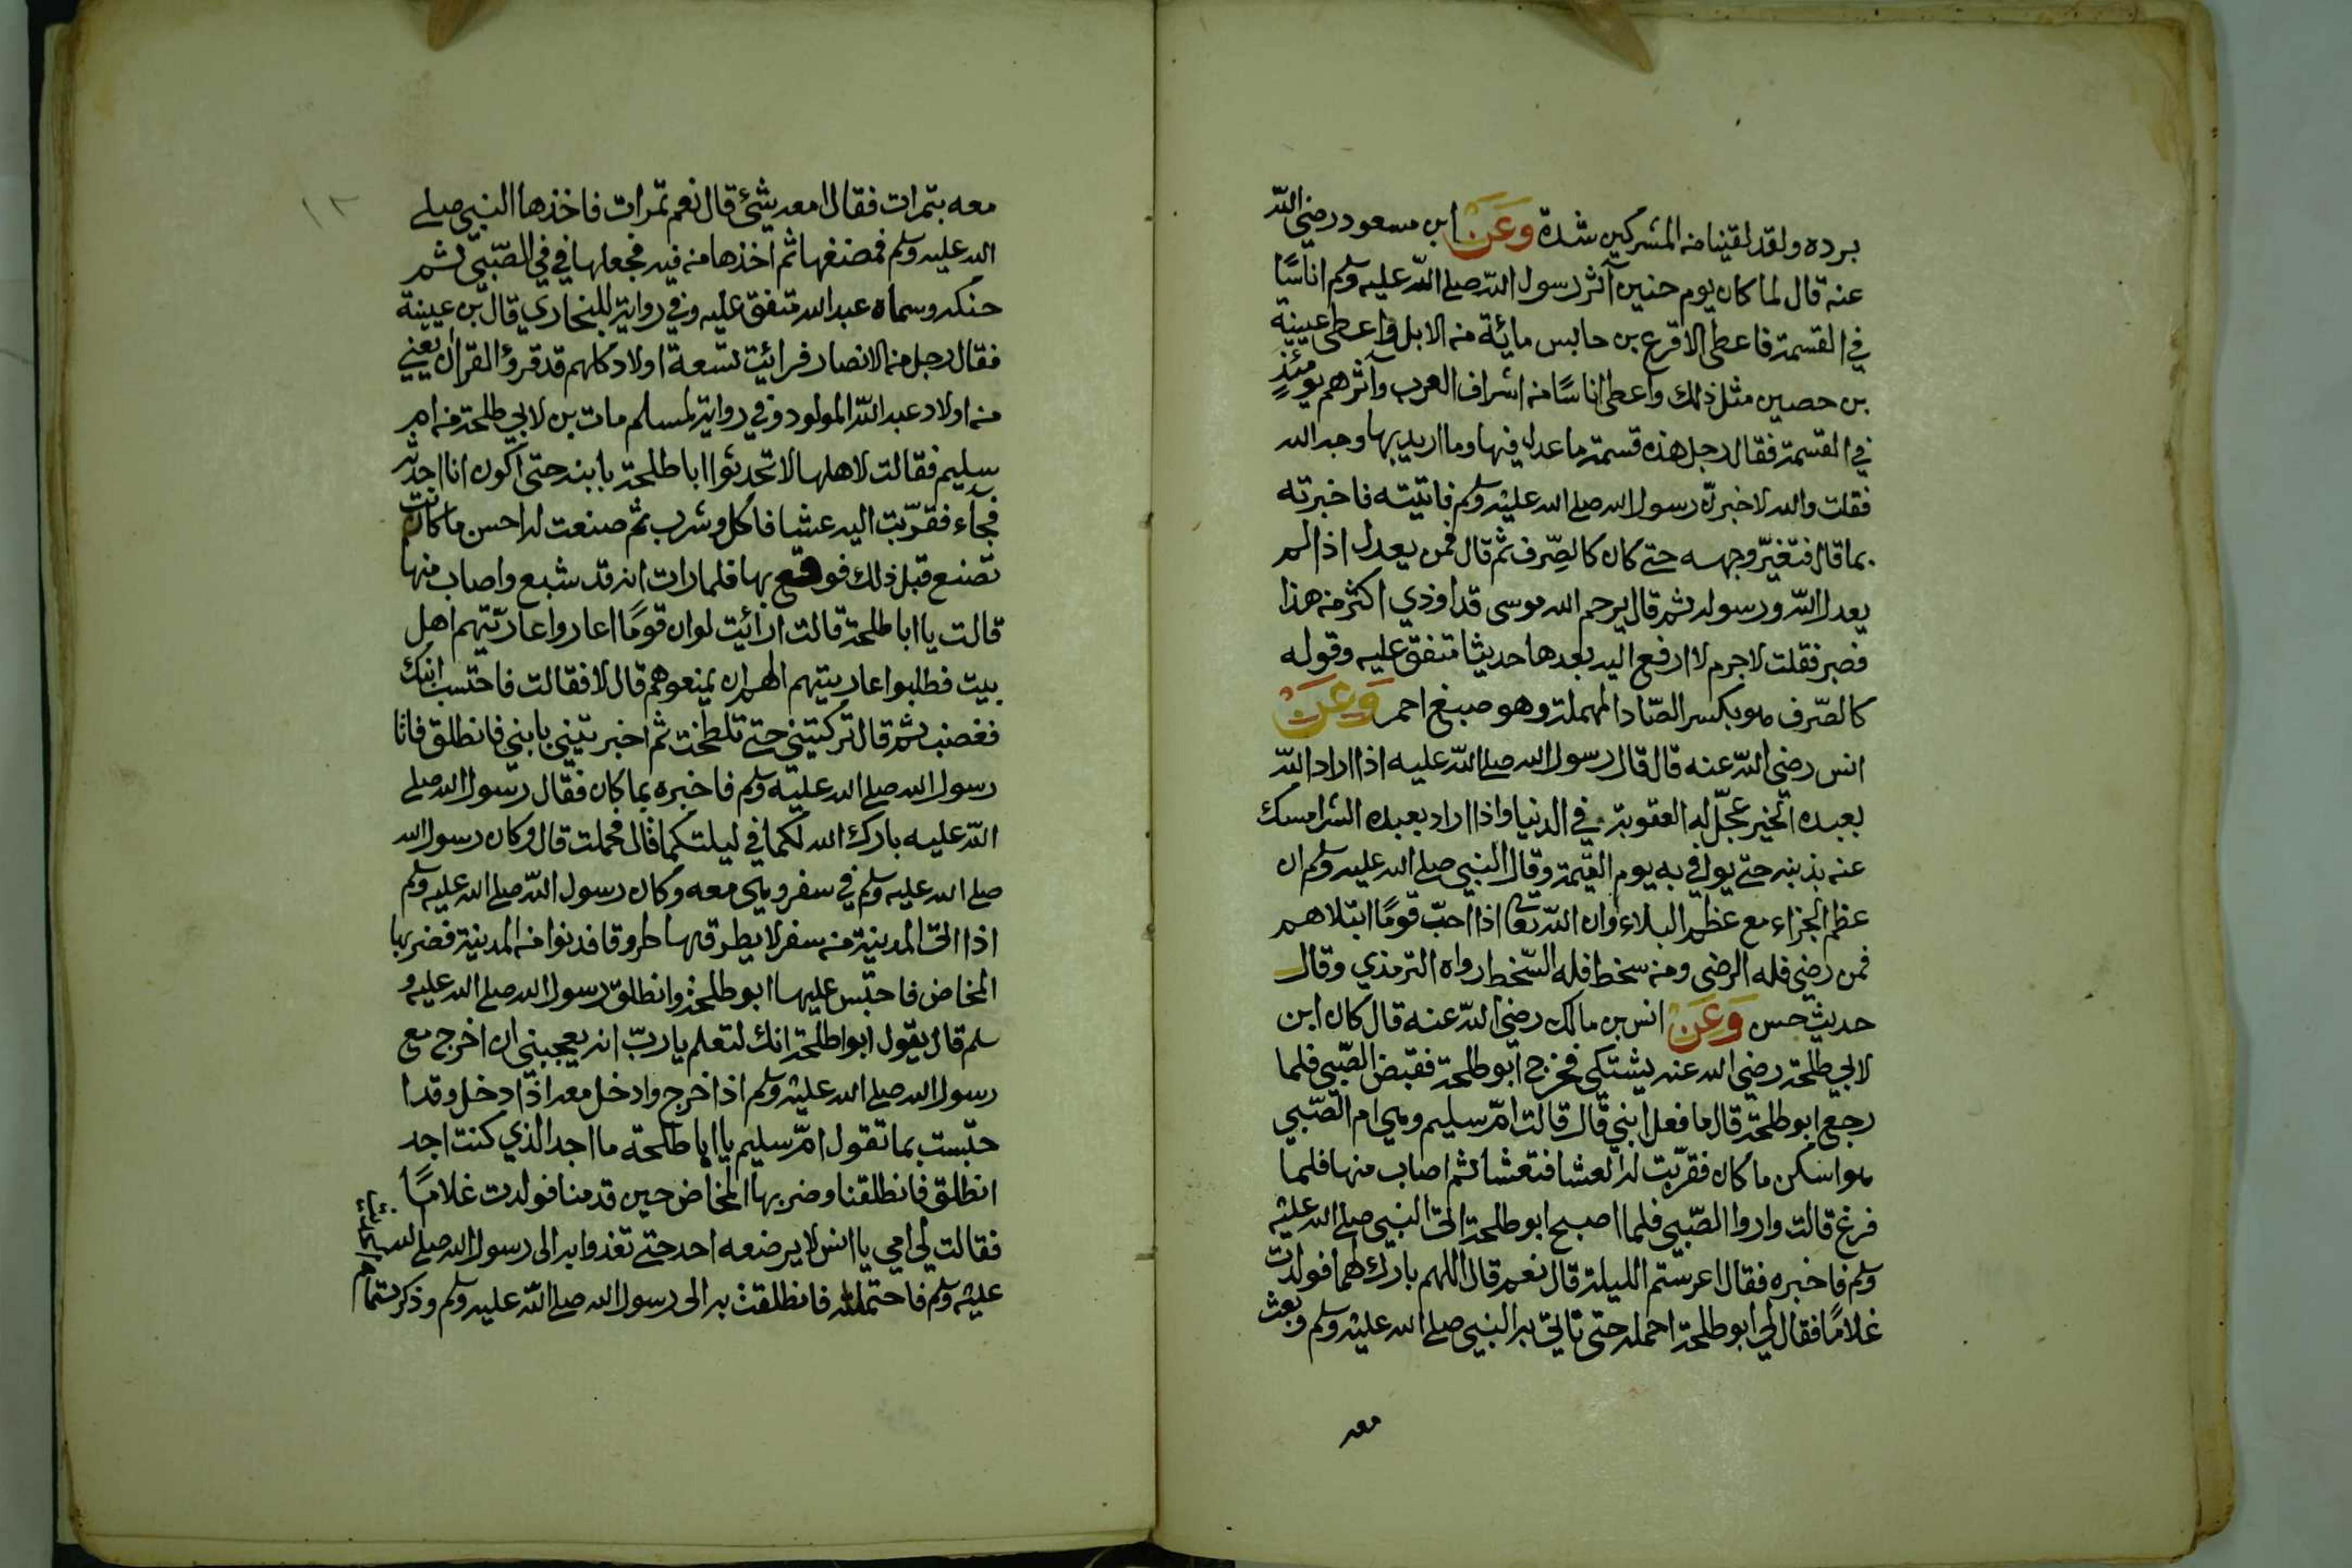 برده ولقد لقينا من المشركين شدة وَعَنْ ابن مسعود رضي الله
عنه قال لما كان يوم حنين آثر رسول الله صلى الله عليه وسلم اناسًا
في القسمة فاعطى الاقرع بن حابس مائة من الابل واعطى عيينة
بن حصين مثل ذلك واعطى اناسًا من اشراف العرب وآثرهم يومئذٍ
في القسمة فقال رجل هذه قسمة ما عدل فيها وما اريد بها وجه الله
فقلت والله لاخبرنّ رسول الله صلى الله عليه وسلم فاتيته فاخبرته
بما قال فتغيّر وجهه حتى كان كالصِّرف ثم قال فمن يعدل اذا لم
يعدل الله ورسوله ثم قال يرحم الله موسى قد اوذي اكثر من هذا
فصبر فقلت لا جرم لا ارفع اليه بعدها حديثا متفق عليه وقوله
كالصّرف هو بكسر الصّاد المهملة وهو صبغ احمر وَعَنْ
انس رضي الله عنه قال قال رسول الله صلى الله عليه اذا اراد الله
بعبده الخير عجّل له العقوبة في الدنيا واذا اراد بعبده الشر امسك
عنه بذنبه حتى يوافي به يوم القيمة وقال النبي صلى الله عليه وسلم ان
عظم الجزاء مع عظم البلاء وان الله تعا اذا احبّ قومًا ابتلاهم
فمن رضي فله الرضى ومن سخط فله السّخط رواه الترمذي وقال
حديث حسن وَعَنْ انس بن مالك رضي الله عنه قال كان ابن
لابي طلحة رضي الله عنه يشتكي فخرج ابو طلحة فقبض الصّبي فلما
رجع ابو طلحة قال ما فعل ابني قال قالت امّ سليم وهي ام الصّبي
هو اسكن ما كان فقرّبت له العشا فتعشا ثم اصاب منها فلما
فرغ قالت واروا الصّبي فلما اصبح ابو طلحة اتى النبي صلى الله عليه
وسلم فاخبره فقال اعرستم الليلة قال نعم قال اللهم بارك لهما فولدت
غلامًا فقال لي ابو طلحة احمله حتى تاتي به النبي صلى الله عليه وسلم وبعث
معه
١٢
معه بتمرات فقال امعه شئ قال نعم تمرات فاخذها النبي صلى
الله عليه وسلم فمضغها ثم اخذها من فيه فجعلها في في الصّبي ثم
حنكه وسماه عبد الله متفق عليه وفي رواية للبخاري قال بن عيينة
فقال رجل من الانصار فرائيت تسعة اولاد كلهم قد قرؤ القران يعني
من اولاد عبد الله المولود وفي رواية لمسلم مات بن لابي طلحة من ام
سليم فقالت لاهلها لا تحدثوا ابا طلحة بابنه حتى اكون انا احدثه
فجآء فقرّبت اليه عشا فاكل وشرب ثم صنعت له احسن ما كانت
تصنع قبل ذلك فوقع بها فلما رات انه قد شبع واصاب منها
قالت يا ابا طلحة قالت ارائيت لو ان قومًا اعاروا عاريتهم اهل
بيت فطلبوا عاريتهم الهم ان يمنعوهم قال لا فقالت فاحتسب ابنك
فغضب ثم قال تركتيني حتى تلطخت ثم اخبرتيني بابني فانطلق فاتا
رسول الله صلى الله عليه وسلم فاخبره بما كان فقال رسول الله صلى
الله عليه بارك الله لكما في ليلتكما قال فحملت قال وكان رسول الله
صلى الله عليه وسلم في سفر وهي معه وكان رسول الله صلى الله عليه وسلم
اذا اتى المدينة من سفر لا يطرقها طروقا فدنوا من المدينة فضربها
المخاض فاحتبس عليها ابو طلحة وانطلق رسول الله صلى الله عليه و
سلم قال يقول ابوا طلحة انك لتعلم يا ربّ انه يعجبني ان اخرج مع
رسول الله صلى الله عليه وسلم اذا خرج وادخل معه اذا دخل وقد ا
حتبست بما تقول امّ سليم يا ابا طلحة ما اجد الذي كنت اجد
انطلق فانطلقنا وضربها المخاض حين قدمنا فولدت غلامًا
فقالت لي امي يا انس لا يرضعه احد حتى تغذوا به الى رسول الله صلى الله
عليه وسلم فاحتملته فانطلقت به الى رسول الله صلى الله عليه وسلم وذكر تمام